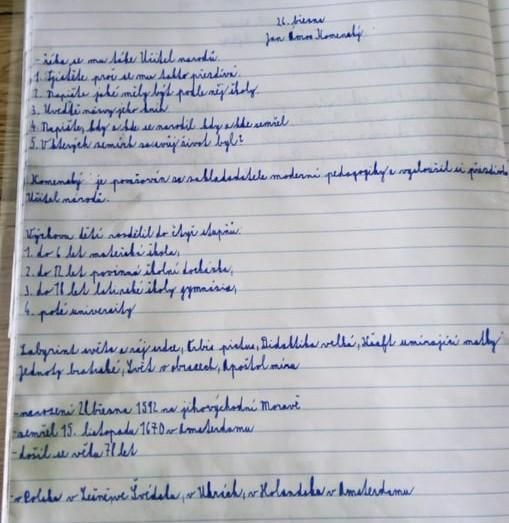 26. března
Jan Amos Komenský
- říká se mu také Učitel národů.
1. Zjistěte proč se mu takto přezdívá.
2. Napište jaké měly být podle něj školy.
3. Uveďte názvy jeho knih
4. Napište, kdy a kde se narodil kdy a kde zemřel
5. V kterých zemích za svůj život byl?
Komenský je považován za zakladatele moderní pedagogiky a vysloužil si přezdívku
Učitel národů.
Výchovu dětí rozdělil do čtyř stupňů.
1. do 6 let mateřská škola,
2. do 12 let povinná školní docházka,
3. do 18 let latinské školy gymnázia,
4. poté university
Labyrint světa a ráj srdce, Orbis pictus, Didaktika velká, Kšaft umírající matky
Jednoty bratrské, Svět v obrazech, Apoštol míru
- narození 28 března 1592 na jihovýchodní Moravě
- zemřel 15. listopadu 1670 v Amsterdamu
- dožil se věku 78 let
- v Polsku v Lešně, ve Švédsku, v Uhrách, v Holandsku v Amsterdamu